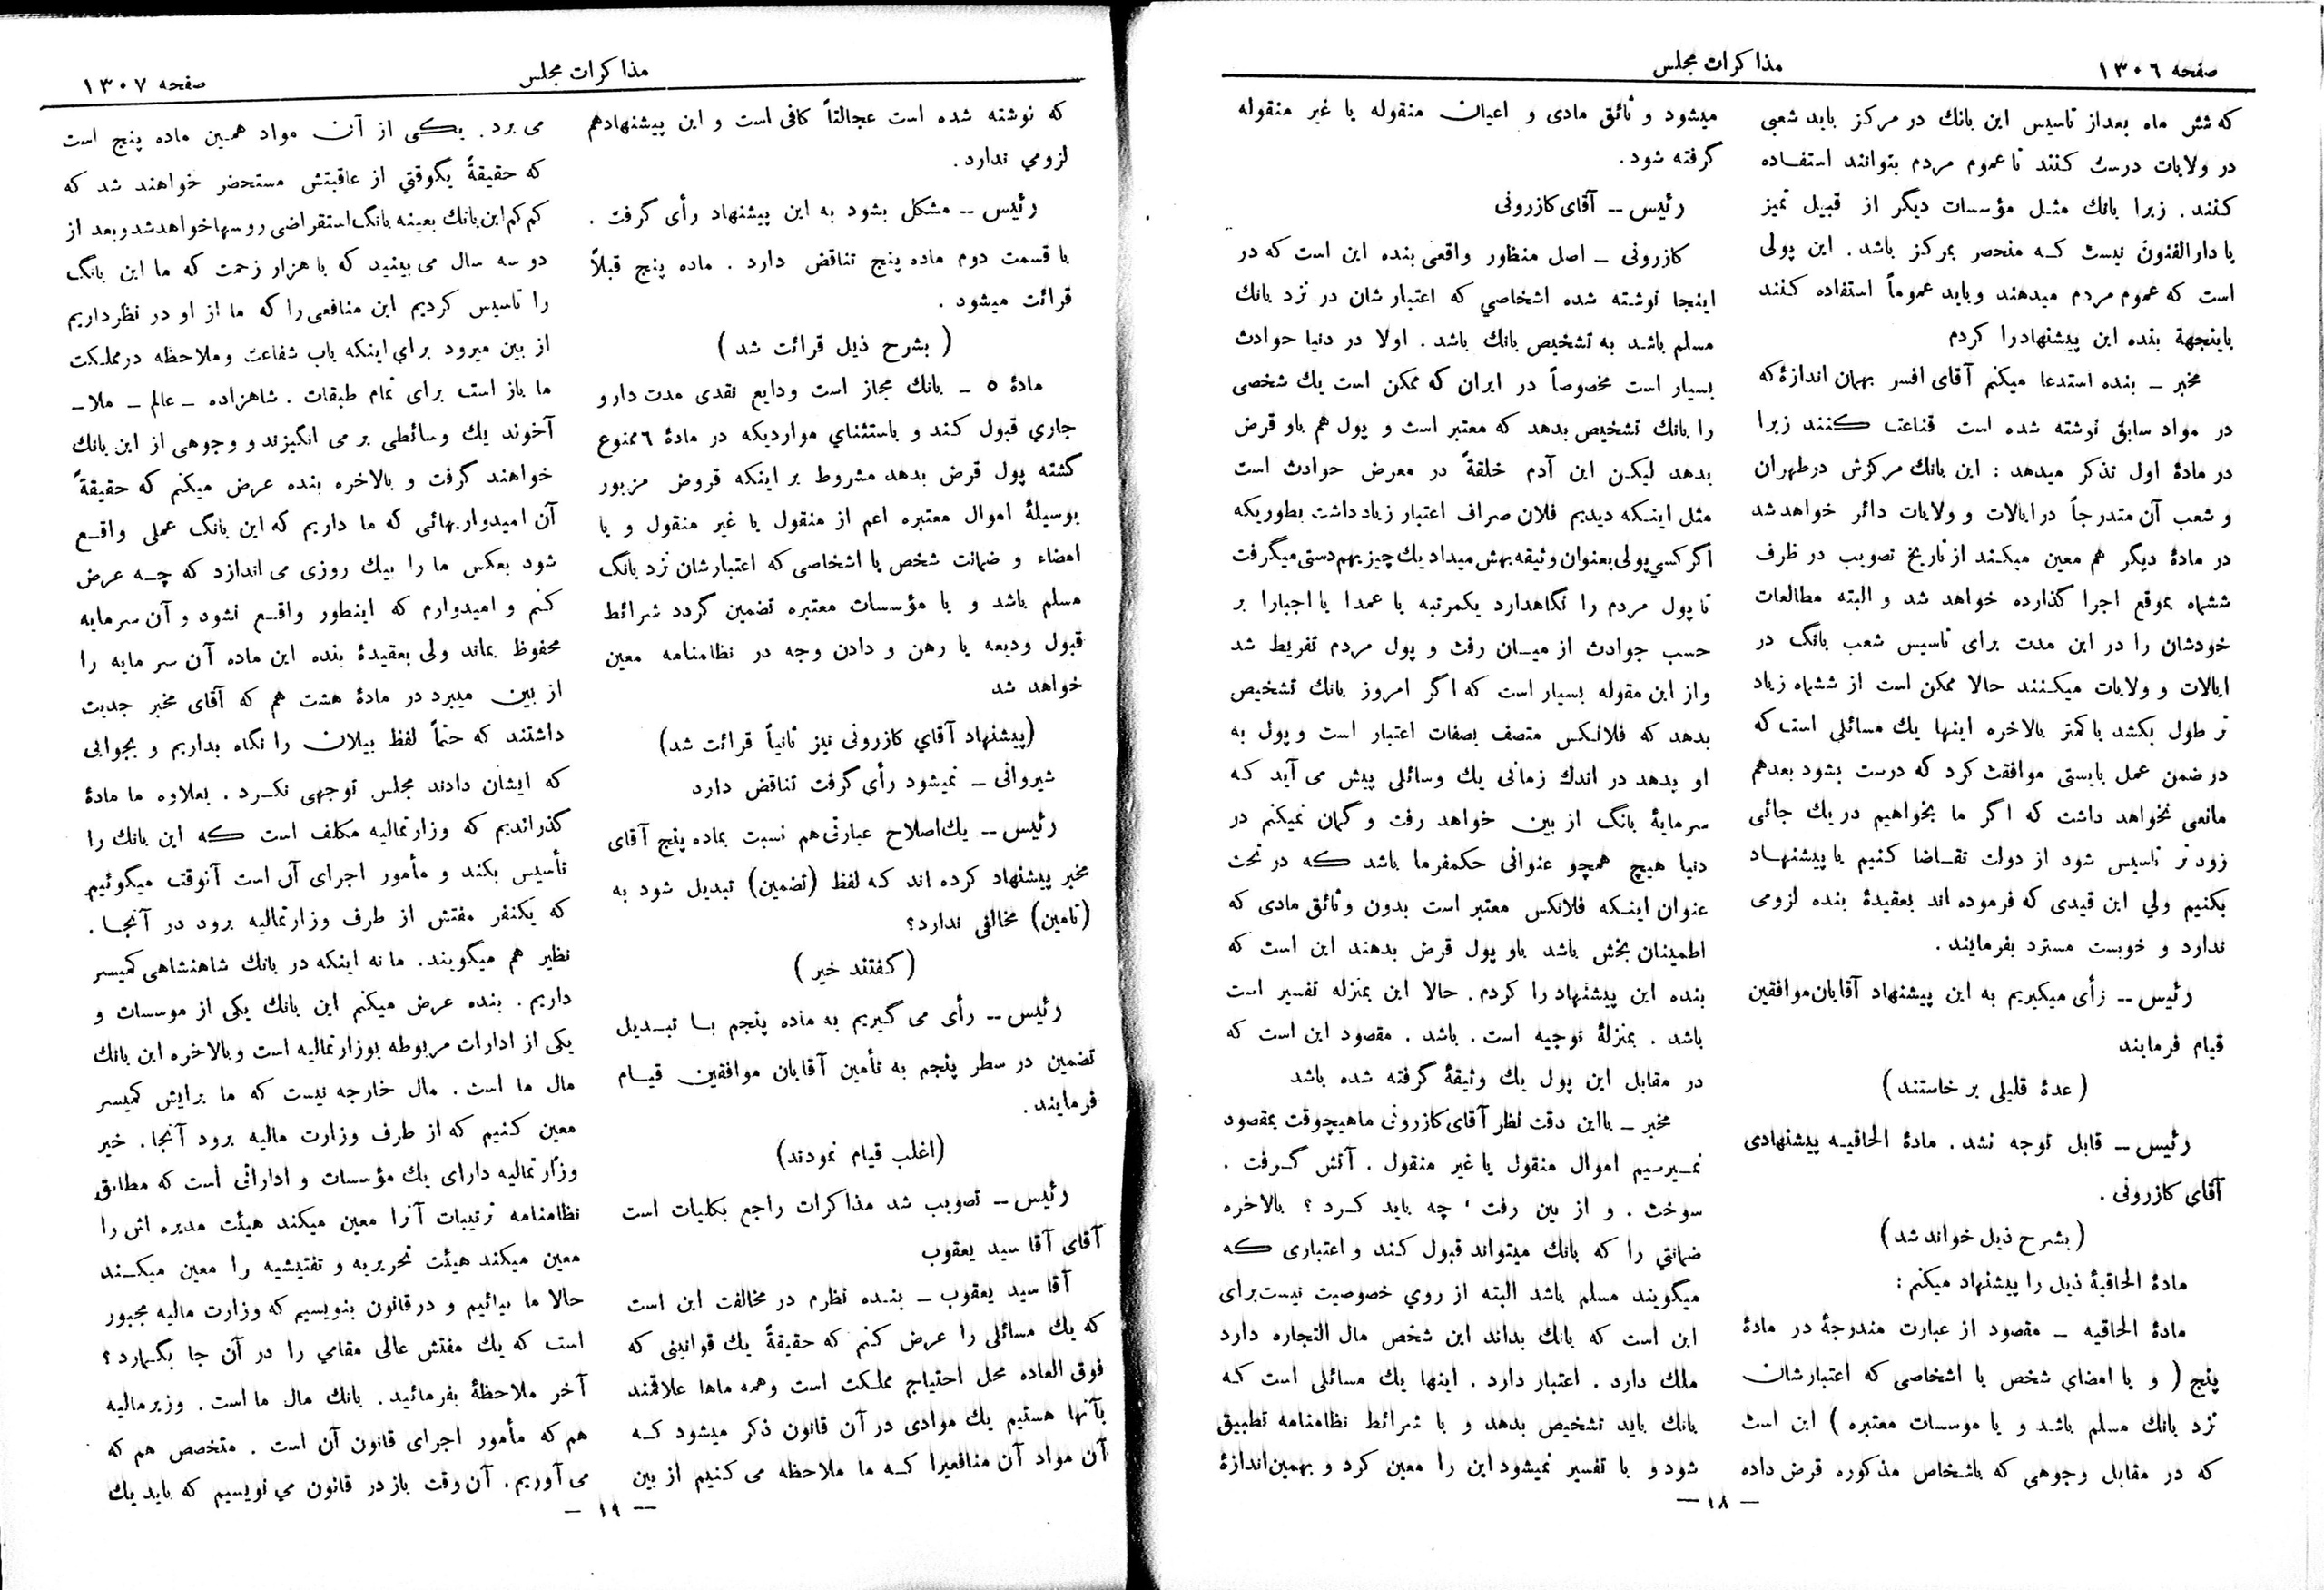 صفحه ۱۳۰۶
مذاکرات مجلس
که شش ماه بعداز تاسیس این بانك در مرکز باید شعبی
در ولایات درست کنند تا عموم مردم بتوانند استفاده
کنند . زیرا بانك مثل مؤسسات دیگر از قبیل تمیز
یا دارالفنون نیست که منحصر بمرکز باشد . این پولی
است که عموم مردم میدهند و باید عموماً استفاده کنند
باینجهة بنده این پیشنهاد را کردم
مخبر ـ بنده استدعا میکنم آقای افسر بهمان اندازۀ که
در مواد سابق نوشته شده است قناعت کنند زیرا
در مادۀ اول تذکر میدهد : این بانك مرکزش در طهران
و شعب آن متدرجاً در ایالات و ولایات دائر خواهد شد
در مادۀ دیگر هم معین میکند از تاریخ تصویب در ظرف
ششماه بموقع اجرا گذارده خواهد شد و البته مطالعات
خودشان را در این مدت برای تاسیس شعب بانگ در
ایالات و ولایات میکنند حالا ممکن است از ششماه زیاد
تر طول بکشد یا کمتر بالاخره اینها یك مسائلی است که
در ضمن عمل بایستی موافقت کرد که درست بشود بعدهم
مانعی نخواهد داشت که اگر ما بخواهیم در یك جائی
زود تر تاسیس شود از دولت تقاضا کنیم یا پیشنهاد
بکنیم ولي این قیدی که فرموده اند بعقیدۀ بنده لزومی
ندارد و خوبست مسترد بفرمایند .
رئیس ــ رأی میگیریم به این پیشنهاد آقایان موافقین
قیام فرمایند
( عدۀ قلیلی بر خاستند )
رئیس ــ قابل توجه نشد . مادۀ الحاقیه پیشنهادی
آقای کازرونی .
( بشرح ذیل خوانده شد )
مادۀ الحاقیۀ ذیل را پیشنهاد میکنم :
مادۀ الحاقیه ـ مقصود از عبارت مندرجۀ در مادۀ
پنج ( و یا امضای شخص یا اشخاصی که اعتبارشان
نزد بانك مسلم باشد و یا موسسات معتبره ) این است
که در مقابل وجوهی که باشخاص مذکوره قرض داده
میشود وثائق مادی و اعیان منقوله یا غیر منقوله
گرفته شود .
رئیس ــ آقای کازرونی
کازرونی ـ اصل منظور واقعی بنده این است که در
اینجا نوشته شده اشخاصي که اعتبار شان در نزد بانك
مسلم باشد به تشخیص بانك باشد . اولا در دنیا حوادث
بسیار است مخصوصاً در ایران که ممکن است یك شخصی
را بانك تشخیص بدهد که معتبر است و پول هم باو قرض
بدهد لیکن این آدم خلقةً در معرض حوادث است
مثل اینکه دیدیم فلان صراف اعتبار زیاد داشت بطوریکه
اگر کسي پولی بعنوان وثیقه بهش میداد یك چیز بهم دستی میگرفت
تا پول مردم را نگاهدارد یکمرتبه یا عمدا یا اجبارا بر
حسب حوادث از میان رفت و پول مردم تفریط شد
و از این مقوله بسیار است که اگر امروز بانك تشخیص
بدهد که فلانکس متصف بصفات اعتبار است و پول به
او بدهد در اندك زمانی یك وسائلی پیش می آید که
سرمایۀ بانگ از بین خواهد رفت و گمان نمیکنم در
دنیا هیچ همچو عنوانی حکمفرما باشد که در تحت
عنوان اینکه فلانکس معتبر است بدون وثائق مادی که
اطمینان بخش باشد باو پول قرض بدهند این است که
بنده این پیشنهاد را کردم . حالا این بمنزله تفسیر است
باشد . بمنزلۀ توجیه است . باشد . مقصود این است که
در مقابل این پول یك وثیقۀ گرفته شده باشد
مخبر ـ با این دقت نظر آقای کازرونی ما هیچوقت بمقصود
نمیرسیم اموال منقول یا غیر منقول . آتش گرفت .
سوخت . و از بین رفت ، چه باید کرد ؟ بالاخره
ضمانتي را که بانك میتواند قبول کند و اعتباری که
میگویند مسلم باشد البته از روي خصوصیت نیست برای
این است که بانك بداند این شخص مال التجاره دارد
ملك دارد . اعتبار دارد . اینها یك مسائلی است که
بانك باید تشخیص بدهد و با شرائط نظامنامه تطبیق
شود و با تفسیر نمیشود این را معین کرد و بهمین اندازۀ
— ۱۸ —
مذاکرات مجلس
صفحه ۱۳۰۷
که نوشته شده است عجالتاً کافی است و این پیشنهادهم
لزومي ندارد .
رئیس ــ مشکل بشود به این پیشنهاد رأی گرفت .
با قسمت دوم ماده پنج تناقض دارد . ماده پنج قبلاً
قرائت میشود .
( بشرح ذیل قرائت شد )
مادۀ ۵ ـ بانك مجاز است ودایع نقدی مدت دار و
جاري قبول کند و باستثناي مواردیکه در مادۀ ٦ ممنوع
گشته پول قرض بدهد مشروط بر اینکه قروض مزبور
بوسیلۀ اموال معتبره اعم از منقول یا غیر منقول و یا
امضاء و ضمانت شخص یا اشخاصی که اعتبارشان نزد بانگ
مسلم باشد و یا مؤسسات معتبره تضمین گردد شرائط
قبول ودیعه یا رهن و دادن وجه در نظامنامه معین
خواهد شد
(پیشنهاد آقاي کازرونی نیز ثانیاً قرائت شد)
شیروانی ـ نمیشود رأی گرفت تناقض دارد
رئیس ــ یك اصلاح عبارتی هم نسبت بماده پنج آقای
مخبر پیشنهاد کرده اند که لفظ (تضمین) تبدیل شود به
(تامین) مخالفی ندارد؟
( گفتند خیر )
رئیس ــ رأی می گیریم به ماده پنجم با تبدیل
تضمین در سطر پنجم به تأمین آقایان موافقین قیام
فرمایند .
(اغلب قیام نمودند)
رئیس ــ تصویب شد مذاکرات راجع بکلیات است
آقای آقا سید یعقوب
آقا سید یعقوب ـ بنده نظرم در مخالفت این است
که یك مسائلی را عرض کنم که حقیقةً یك قوانینی که
فوق العاده محل احتیاج مملکت است و همه ماها علاقمند
بآنها هستیم یك موادی در آن قانون ذکر میشود که
آن مواد آن منافعیرا که ما ملاحظه می کنیم از بین
می برد . یکی از آن مواد همین ماده پنج است
که حقیقةً یکوقتي از عاقبتش مستحضر خواهند شد که
کم کم این بانك بعینه بانگ استقراضی روسها خواهد شد و بعد از
دو سه سال می بینید که با هزار زحمت که ما این بانگ
را تاسیس کردیم این منافعی را که ما از او در نظر داریم
از بین میرود براي اینکه باب شفاعت و ملاحظه در مملکت
ما باز است برای تمام طبقات . شاهزاده ـ عالم ـ ملا ـ
آخوند یك وسائطی بر می انگیزند و وجوهی از این بانك
خواهند گرفت و بالاخره بنده عرض میکنم که حقیقةً
آن امیدواریهائی که ما داریم که این بانگ عملی واقع
شود بعکس ما را بیك روزی می اندازد که چه عرض
کنم و امیدوارم که اینطور واقع نشود و آن سرمایه
محفوظ بماند ولی بعقیدۀ بنده این ماده آن سر مایه را
از بین میبرد در مادۀ هشت هم که آقای مخبر جدیت
داشتند که حتماً لفظ بیلان را نگاه بداریم و بجوابی
که ایشان دادند مجلس توجهی نکرد . بعلاوه ما مادۀ
گذراندیم که وزارتمالیه مکلف است که این بانك را
تأسیس بکند و مأمور اجرای آن است آنوقت میگوئیم
که یکنفر مفتش از طرف وزارتمالیه برود در آنجا .
نظیر هم میگویند . ما نه اینکه در بانك شاهنشاهی کمیسر
داریم . بنده عرض میکنم این بانك یکی از موسسات و
یکی از ادارات مربوطه بوزارتمالیه است و بالاخره این بانك
مال ما است . مال خارجه نیست که ما برایش کمیسر
معین کنیم که از طرف وزارت مالیه برود آنجا . خیر
وزارتمالیه دارای یك مؤسسات و اداراتی است که مطابق
نظامنامه ترتیبات آنرا معین میکند هیئت مدیره اش را
معین میکند هیئت تحریریه و تفتیشیه را معین میکند
حالا ما بیائیم و در قانون بنویسیم که وزارت مالیه مجبور
است که یك مفتش عالی مقامي را در آن جا بگمارد ؟
آخر ملاحظۀ بفرمائید . بانك مال ما است . وزیر مالیه
هم که مأمور اجرای قانون آن است . متخصص هم که
می آوریم . آن وقت باز در قانون مي نویسیم که باید یك
— ۱۹ —